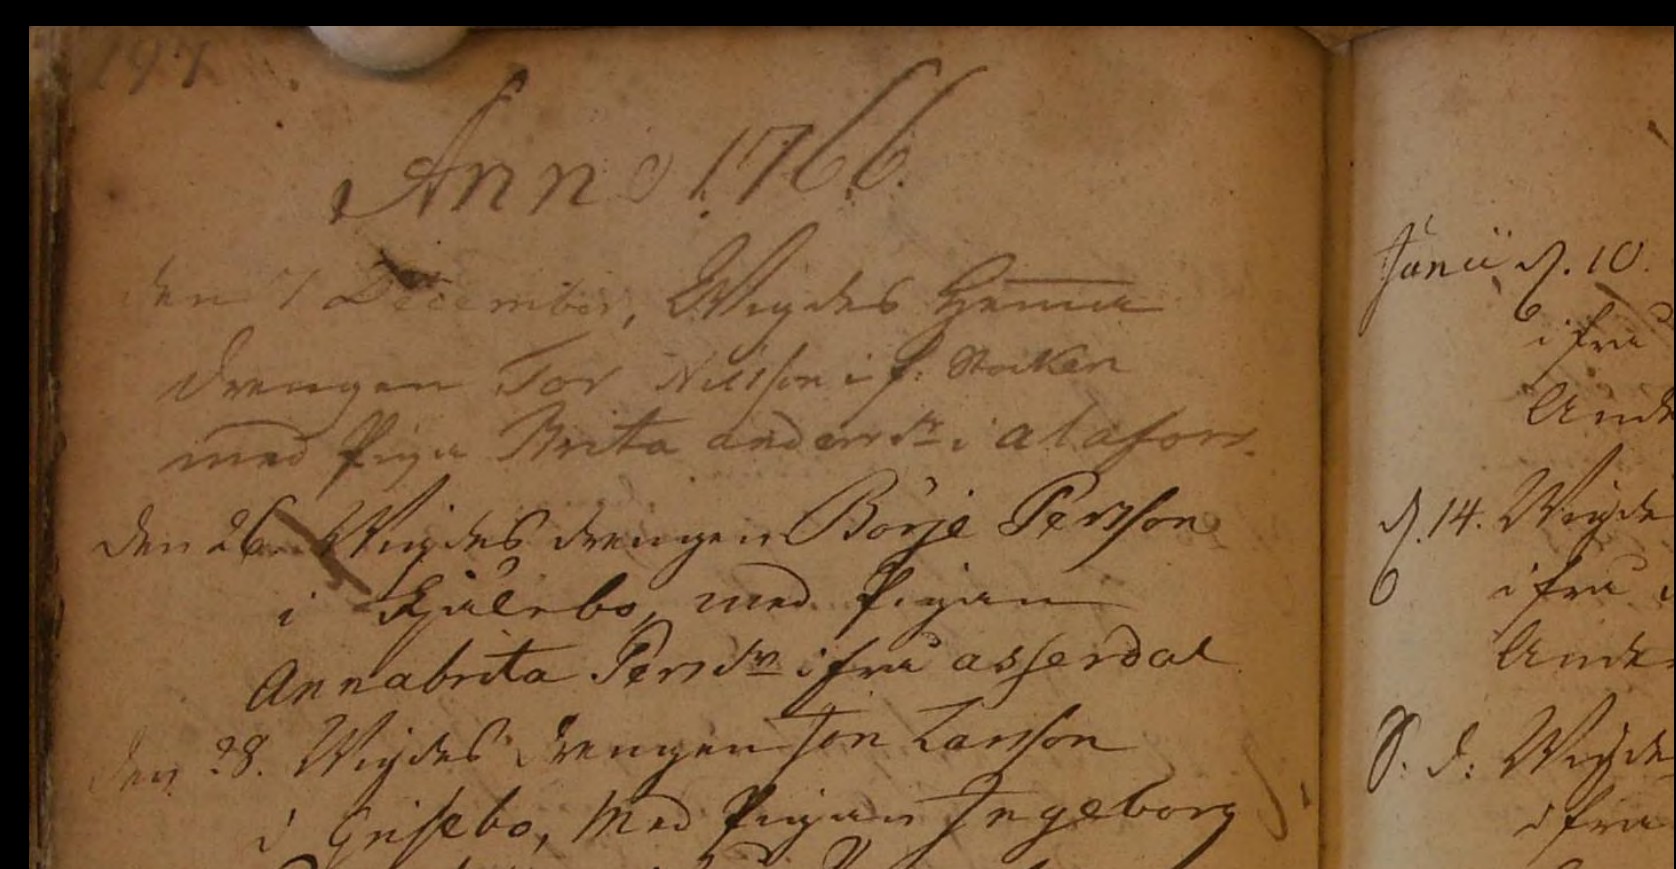 197
Anno 1766.
den 7 December, Wigdes
drengen Tor Nilsson i f: Stocken
med Piga Brita andersdr i alafors.
den 26 Wigdes drengen Börje Persson
i med Pigan
Annabrita Persdr ifrå asserdal
den 28. Wigdes drengen Jon Larsson
i Grisebo, Med Pigan Ingeborg
Junii d. 10.
ifrå
Ande
d. 14. Wigde
ifrå
Ande
S. d: Wigde
ifra